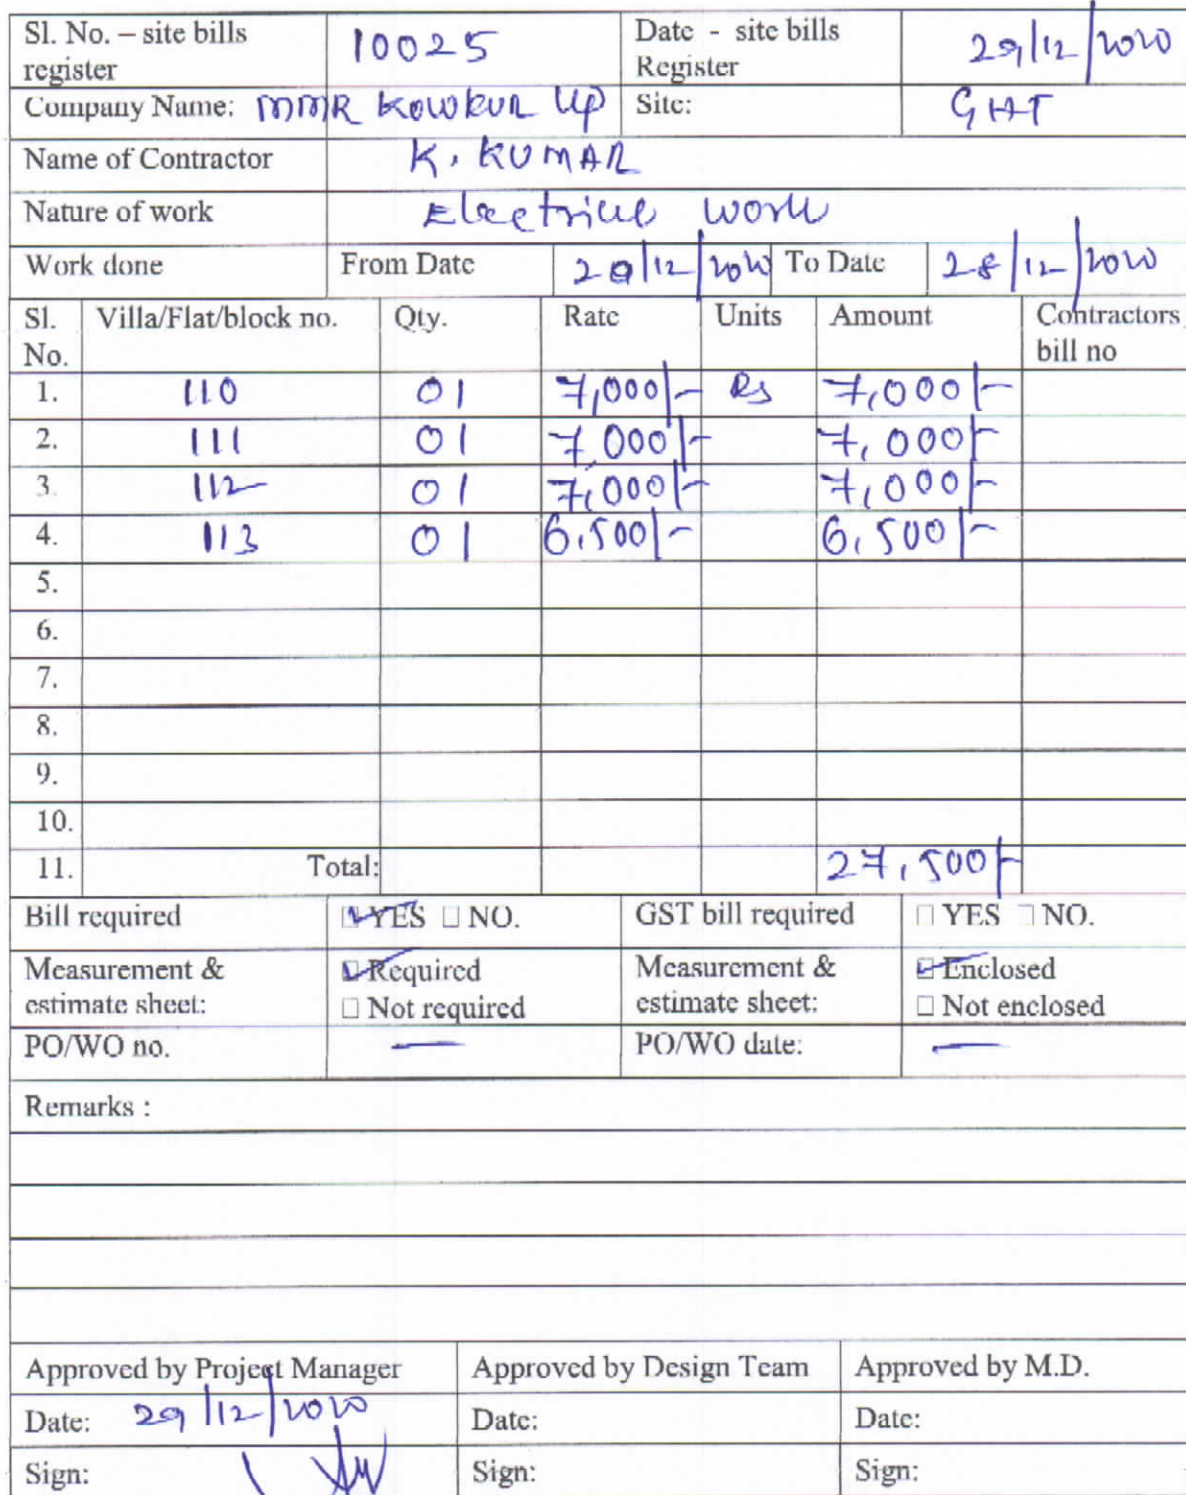 Sl. No. – site bills register 10025 Date - site bills Register 29/12/2020
Company Name: MMR KOWKUR LLP Site: GHT
Name of Contractor K. KUMAR
Nature of work Electrical work
Work done From Date 20/12/2020 To Date 28/12/2020
Sl. No. Villa/Flat/block no. Qty. Rate Units Amount Contractors bill no
1. 110 01 7,000/- Rs 7,000/-
2. 111 01 7,000/- 7,000/-
3. 112 01 7,000/- 7,000/-
4. 113 01 6,500/- 6,500/-
5.
6.
7.
8.
9.
10.
11. Total: 27,500/-
Bill required ☑ YES ☐ NO. GST bill required ☐ YES ☐ NO.
Measurement & estimate sheet: ☑ Required ☐ Not required Measurement & estimate sheet: ☑ Enclosed ☐ Not enclosed
PO/WO no. — PO/WO date: —
Remarks :
Approved by Project Manager Approved by Design Team Approved by M.D.
Date: 29/12/2020 Date: Date:
Sign: Sign: Sign: